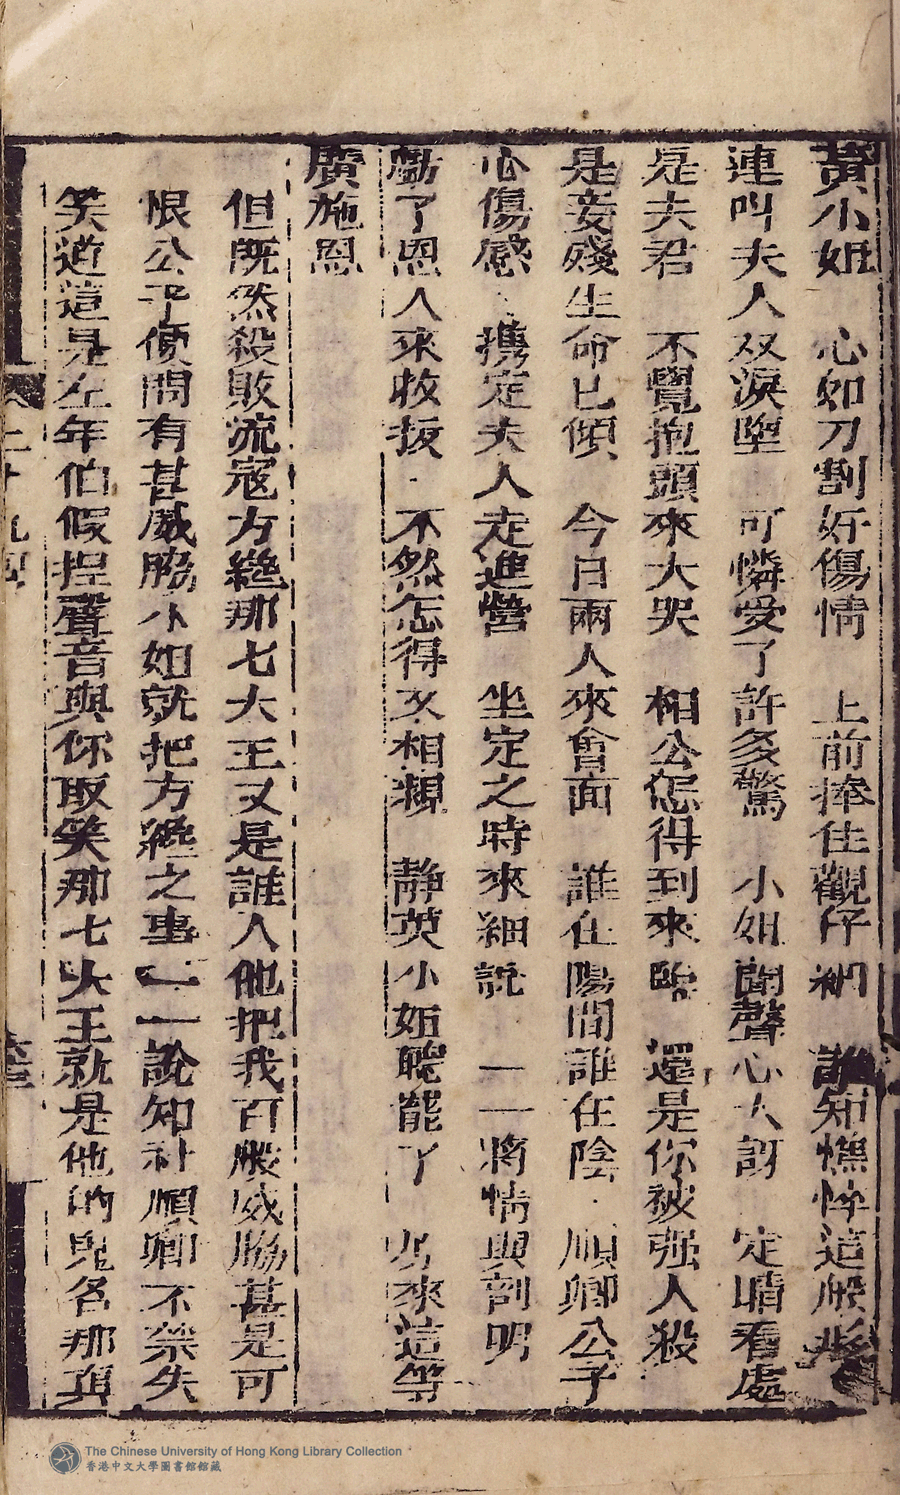 黃小姐　心如刀割好傷情　上前捧住觀仔細　誰知憔悴這般形
連叫夫人双淚墮　可憐受了許多驚　小姐聞聲心大訝　定晴看處
是夫君　不覺抱頭來大哭　相公怎得到來臨　還是你被强人殺
是妾殘生命已傾　今日兩人來會面　誰在陽間誰在陰　順卿公子
心傷感　携定夫人走進營　坐定之時來細説　一一將情與剖明
虧了恩人來收扳　不然怎得又相親　靜英小姐聽罷了　　來這等
廣施恩
但既然殺敗流寇方纔那七大王又是誰人他把我百般威脇甚是可
恨公子便問有甚威脇小姐就把方纔之事一一說知杜順卿不禁失
笑道這是左年伯假揑聲音與你取笑那七大王就是他的鬼名那
二十九
The Chinese University of Hong Kong Library Collection
香港中文大學圖書館館藏